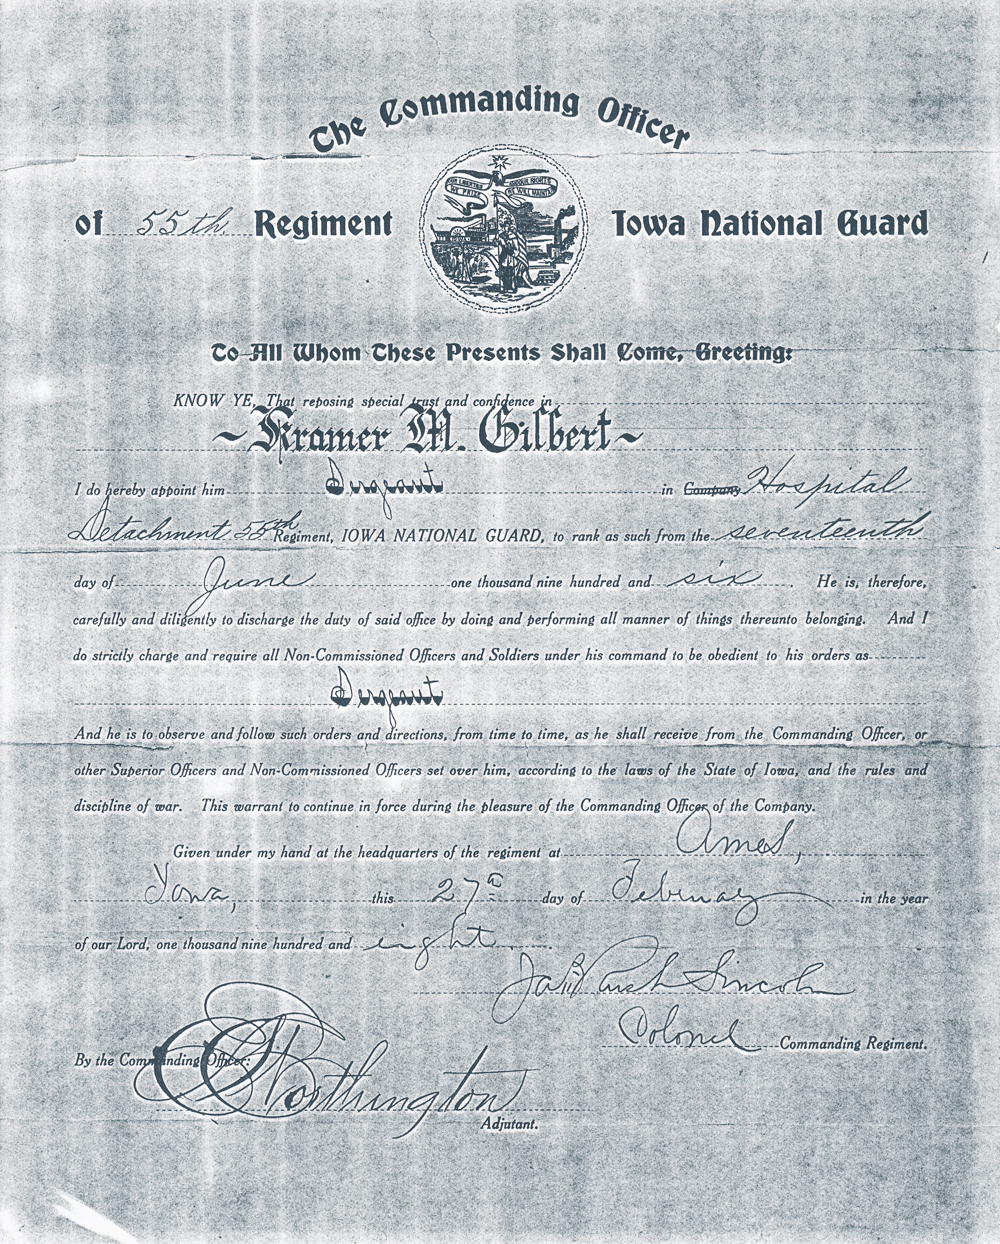 The Commanding Officer
OUR LIBERTIES WE PRIZE AND OUR RIGHTS WE WILL MAINTAIN
of 55th Regiment Iowa National Guard
To All Whom These Presents Shall Come, Greeting:
KNOW YE, That reposing special trust and confidence in
~ Kramer M. Gilbert ~
I do hereby appoint him Sergeant in Company Hospital
Detachment 55th Regiment, IOWA NATIONAL GUARD, to rank as such from the seventeenth
day of June one thousand nine hundred and six. He is, therefore,
carefully and diligently to discharge the duty of said office by doing and performing all manner of things thereunto belonging. And I
do strictly charge and require all Non-Commissioned Officers and Soldiers under his command to be obedient to his orders as
Sergeant
And he is to observe and follow such orders and directions, from time to time, as he shall receive from the Commanding Officer, or
other Superior Officers and Non-Commissioned Officers set over him, according to the laws of the State of Iowa, and the rules and
discipline of war. This warrant to continue in force during the pleasure of the Commanding Officer of the Company.
Given under my hand at the headquarters of the regiment at Ames,
Iowa, this 27th day of February in the year
of our Lord, one thousand nine hundred and eight.
Jas Rush Lincoln
Colonel Commanding Regiment.
By the Commanding Officer:
Worthington
Adjutant.